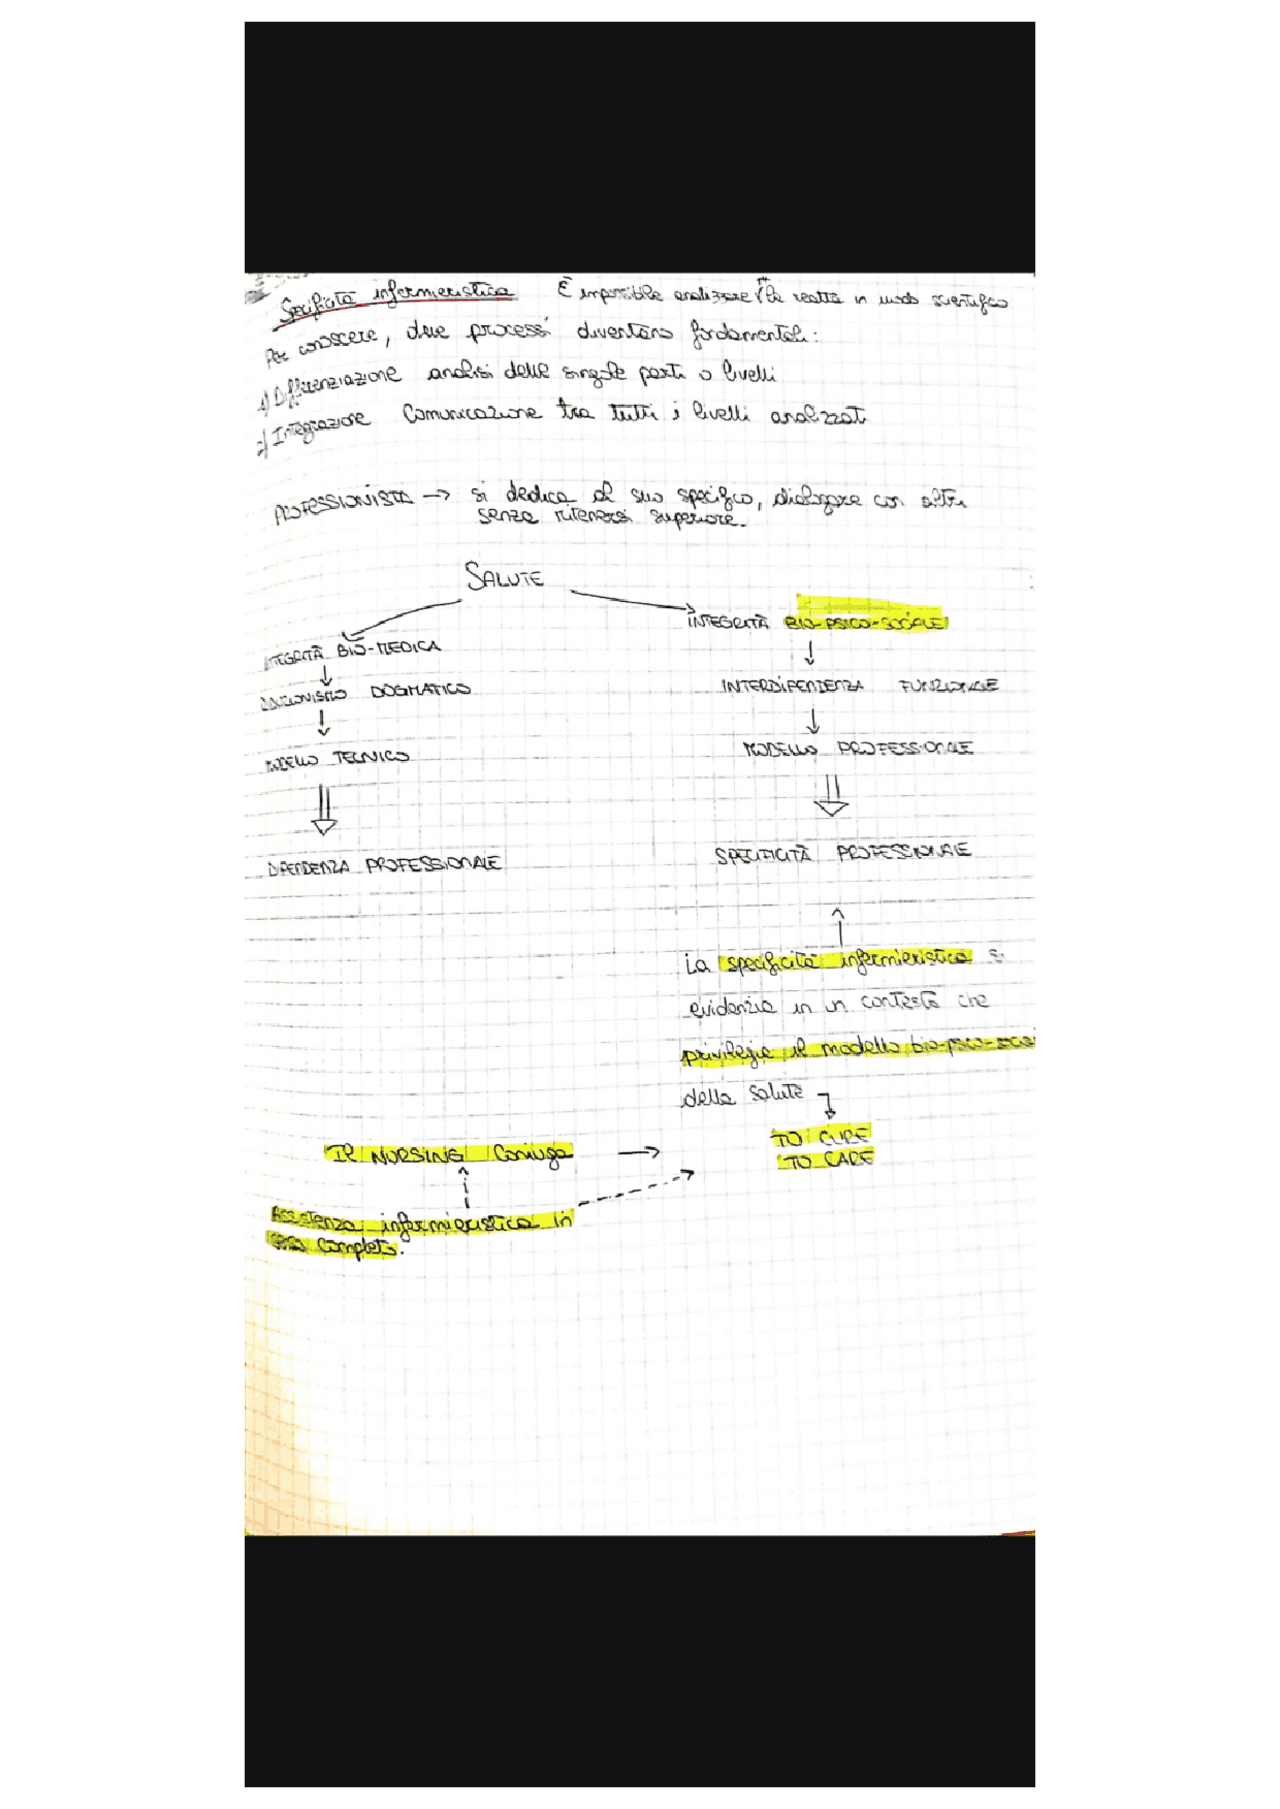 Specificità infermieristica È impossibile analizzare la realtà in modo scientifico
Per conoscere, due processi diventano fondamentali:
1) Differenziazione analisi delle singole parti o livelli
2) Integrazione Comunicazione tra tutti i livelli analizzati
PROFESSIONISTA → si dedica al suo specifico, dialogare con altri
senza ritenersi superiore.
SALUTE
INTEGRITÀ BIO-PSICO-SOCIALE
INTEGRITÀ BIO-MEDICA
↓
↓
DOGMATICO
INTERDIPENDENZA FUNZIONALE
↓
↓
MODELLO TECNICO
MODELLO PROFESSIONALE
DIPENDENZA PROFESSIONALE
SPECIFICITÀ PROFESSIONALE
La specificità infermieristica si
evidenzia in un contesto che
privilegie il modello bio-psico-socia
della salute
TO CURE
Il NURSING Coniuga →
TO CARE
Assistenza infermieristica in
completo.